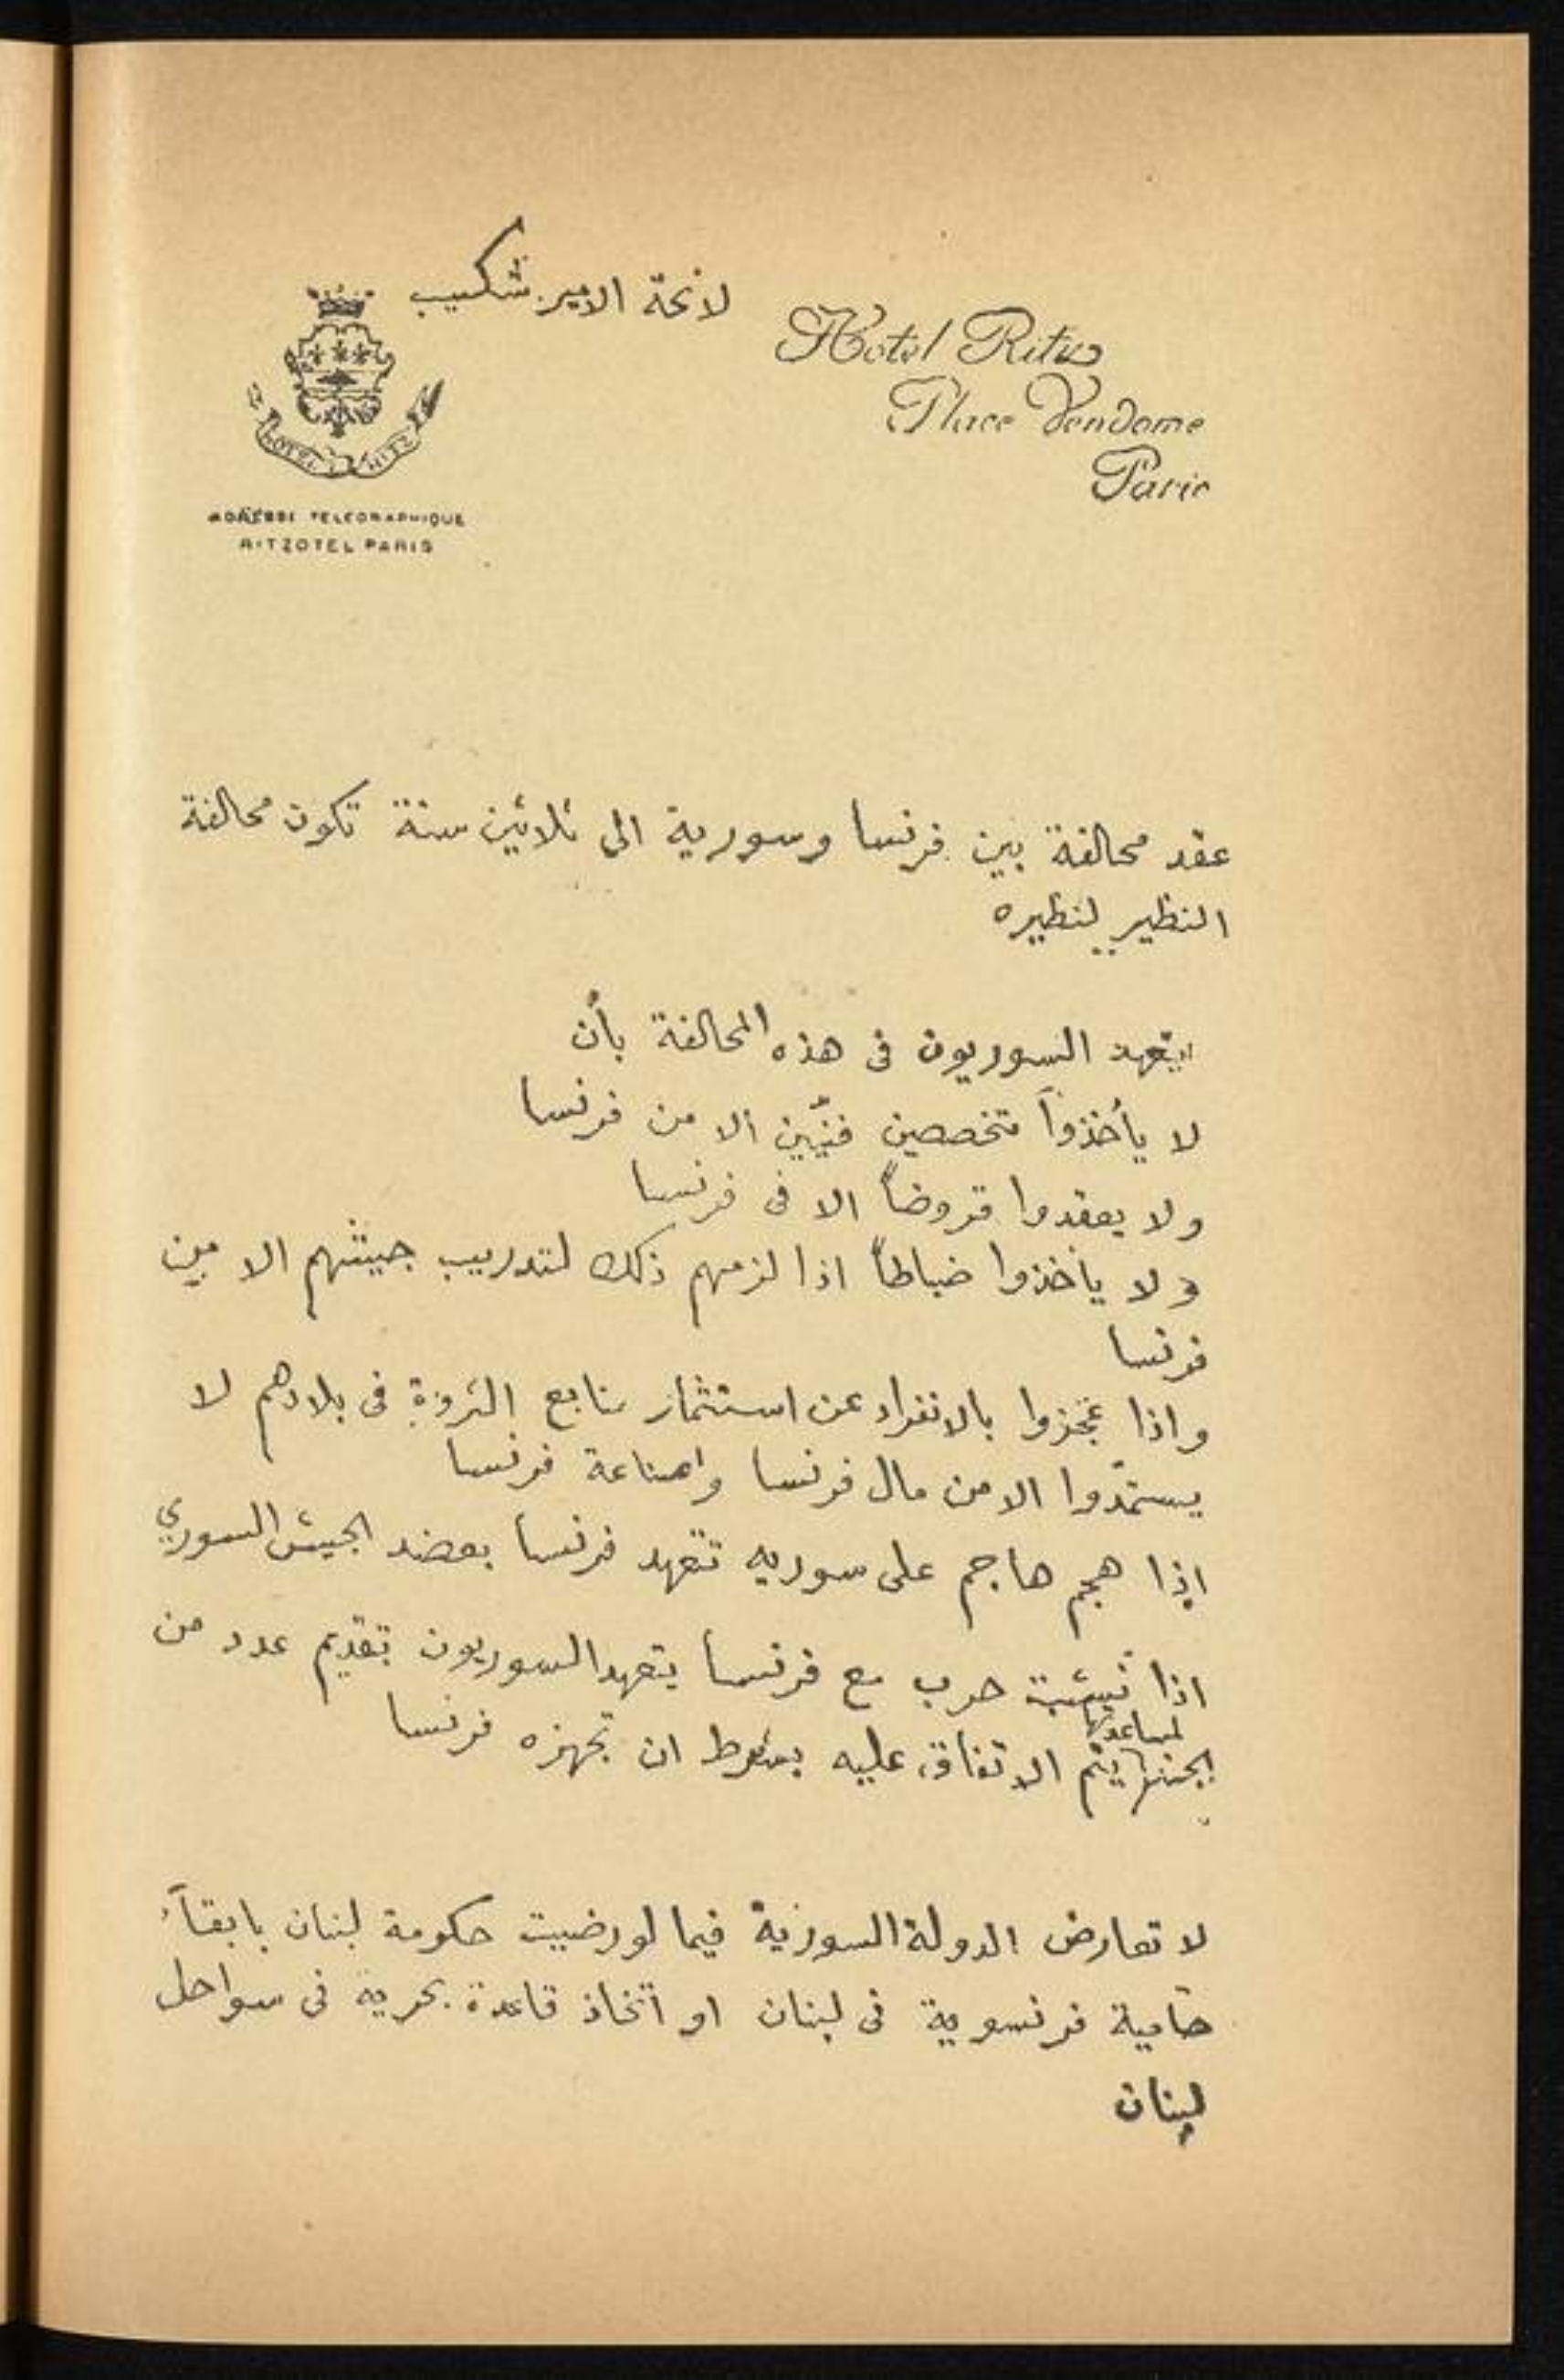 لائحة الامير شكيب
Hotel Ritz
Place Vendome
Paris
HOTEL RITZ
ADRESSE TELEGRAPHIQUE
RITZOTEL PARIS
عقد محالفة بين فرنسا وسورية الى ثلاثين سنة تكون محالفة
النظير لنظيره
يتعهد السوريون في هذه المحالفة بأن
لا يأخذوا متخصصين فنيّين الا من فرنسا
ولا يعقدوا قروضاً الا في فرنسا
ولا يأخذوا ضباطاً اذا لزمهم ذلك لتدريب جيشهم الا من
فرنسا
واذا عجزوا بالانفراد عن استثمار منابع الثروة في بلادهم لا
يستمدّوا الا من مال فرنسا وصناعة فرنسا
إذا هجم هاجم على سوريه تتعهد فرنسا بعضد الجيش السوري
اذا نشبت حرب مع فرنسا يتعهد السوريون بتقديم عدد من
لمساعدتها
الجند يتم الاتفاق عليه بشرط ان تجهزه فرنسا
لا تعارض الدولة السورية فيما لو رضيت حكومة لبنان بابقآء
حامية فرنسوية في لبنان او اتخاذ قاعدة بحرية في سواحل
لبنان